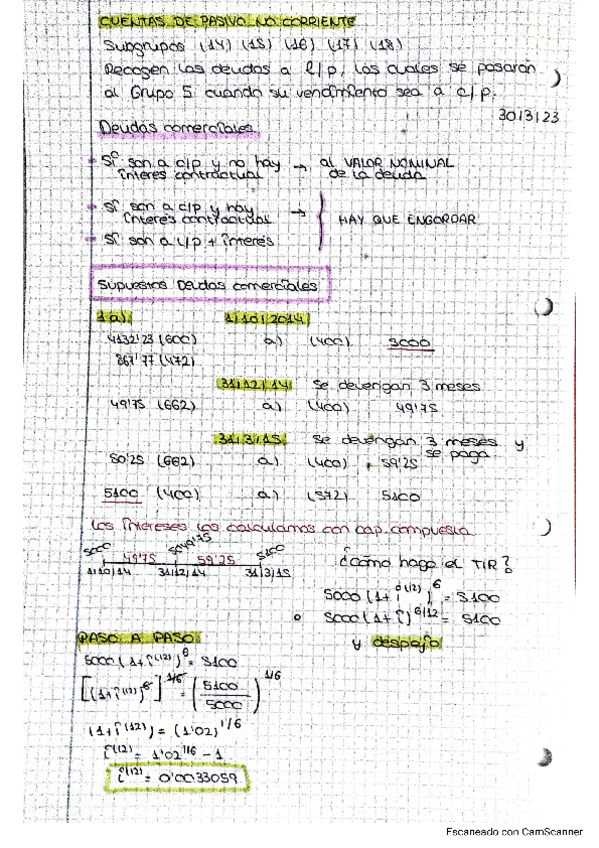 CUENTAS DE PASIVO NO CORRIENTE
Subgrupos (14) (15) (16) (17) (18)
Recogen las deudas a l/p, las cuales se pasarán
al Grupo 5 cuando su vencimiento sea a c/p.
30/3/23
Deudas comerciales
Si son a c/p y no hay interés contractual → al VALOR NOMINAL de la deuda
Si son a c/p y hay interés contractual →
Si son a l/p + interés
HAY QUE ENGORDAR
Supuestos Deudas comerciales
1 a)
1/10/2014
4132'23 (600) a) (400) 5000
867'77 (472)
31/12/14 Se devengan 3 meses
49'75 (662) a) (400) 49'75
31/3/15 Se devengan 3 meses y se paga
50'25 (662) a) (400) 59'25
5100 (400) a) (572) 5100
Los intereses los calculamos con cap. compuesta
5000 5049'75 5100
49'75 59'25
1/10/14 31/12/14 31/3/15
¿Cómo hago el TIR?
5000 (1+i^(12))^6 = 5100
o 5000 (1+i)^6/12 = 5100
y despejo
PASO A PASO
5000 (1+i^(12))^6 = 5100
[(1+i^(12))^6]^1/6 = (5100/5000)^1/6
(1+i^(12)) = (1'02)^1/6
i^(12) = 1'02^1/6 - 1
i^(12) = 0'0033059
Escaneado con CamScanner